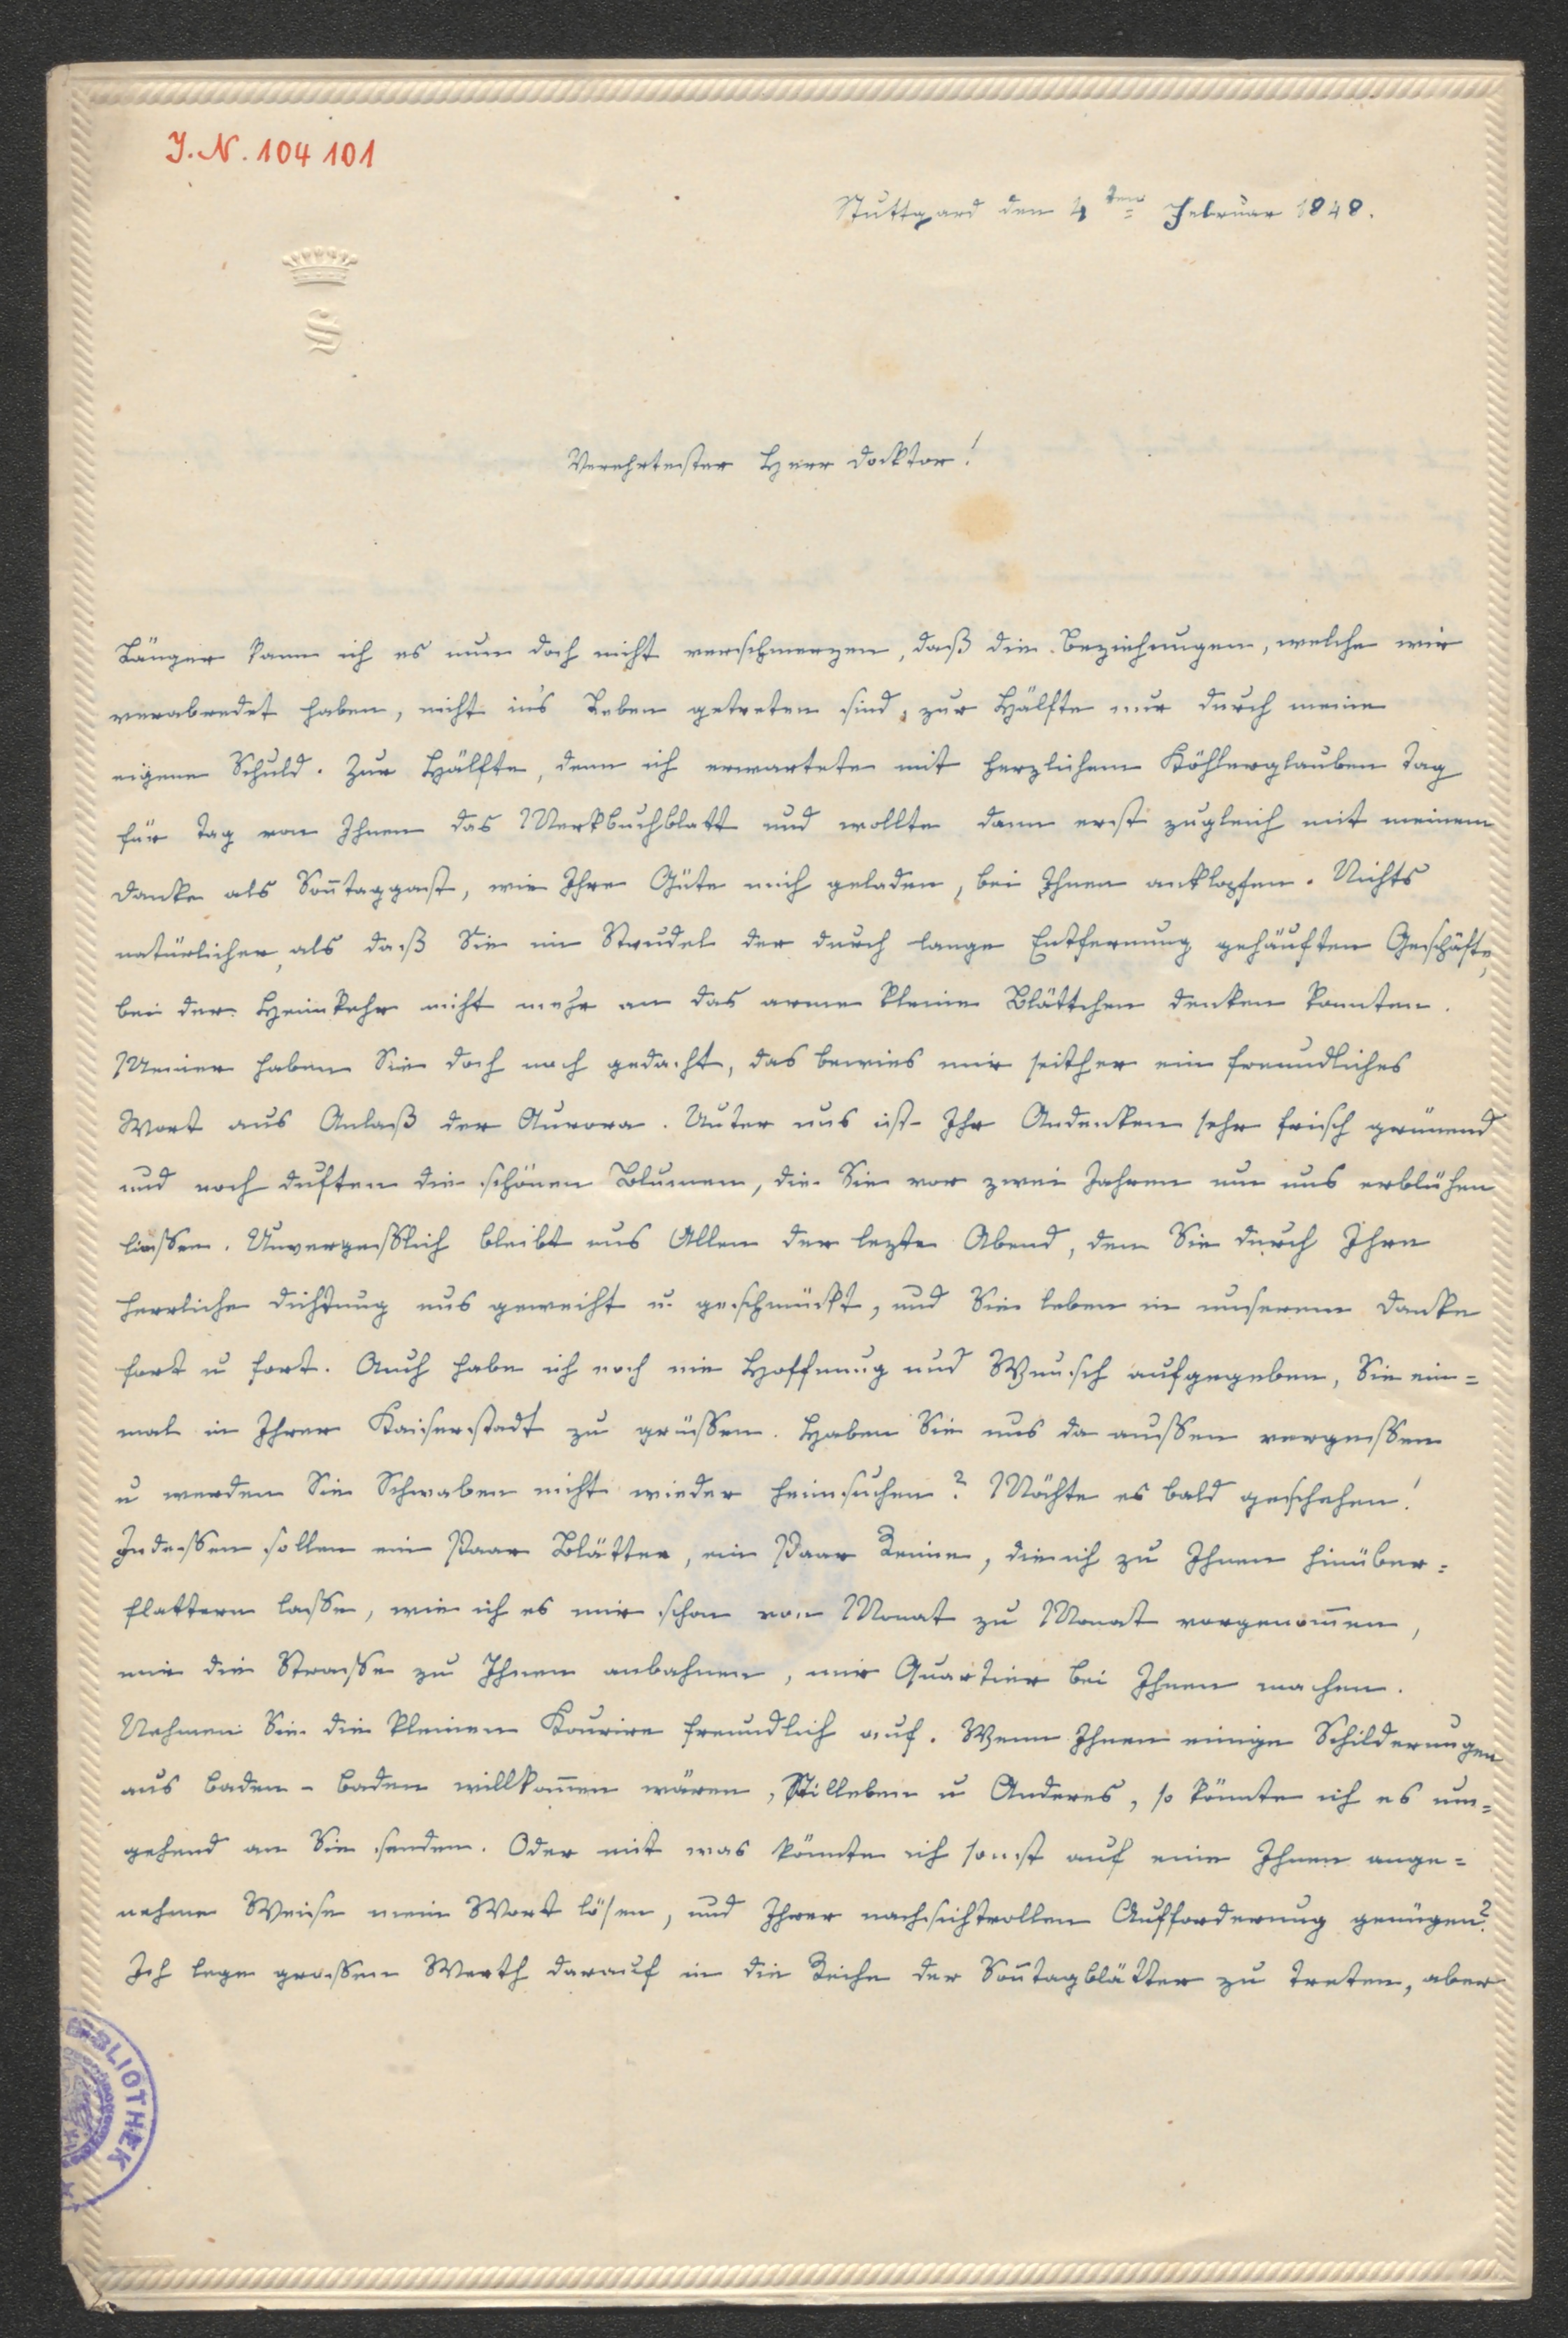 J. N. 104 101
Stuttgard den 4ten Februar 1848.
S
Verehrtester Herr Docktor!
Länger kann ich es nun doch nicht verschmerzen, daß die Beziehungen, welche wir
verabredet haben, nicht in's Leben getreten sind, zur Hälfte nur durch meine
eigene Schuld. Zur Hälfte, denn ich erwartete mit herzlichem Köhlerglauben Tag
für Tag von Ihnen das Merkbuchblatt und wollte dann erst zugleich mit meinem
Danke als Son̄taggast, wie Ihre Güte mich geladen, bei Ihnen anklopfen. Nichts
natürlicher, als daß Sie im Strudel der durch lange Entfernung gehäuften Geschäfte,
bei der Heimkehr nicht mehr an das arme kleine Blättchen denken konnten.
Meiner haben Sie doch noch gedacht, das bewies mir seither ein freundliches
Wort aus Anlaß der Aurora. Unter uns ist Ihr Andenken sehr frisch grünend
und noch duften die schönen Blumen, die Sie vor zwei Jahren um uns erblühen
liessen. Unvergesslich bleibt uns Allen der lezte Abend, den Sie durch Ihre
herrliche Dichtung uns geweiht u. geschmückt, und Sie leben in unserem Danke
fort u fort. Auch habe ich noch nie Hoffnung und Wunsch aufgegeben, Sie ein=
mal in Ihrer Kaiserstadt zu grüssen. Haben Sie uns da aussen vergessen
u werden Sie Schwaben nicht wieder heimsuchen? Möchte es bald geschehen!
Indessen sollen ein Paar Blätter, ein Paar Reime, die ich zu Ihnen hinüber=
flattern lasse, wie ich es mir schon von Monat zu Monat vorgenom̄en,
mir die Strasse zu Ihnen anbahnen, mir Quartier bei Ihnen machen.
Nehmen Sie die kleinen Kourire freundlich auf. Wenn Ihnen einige Schilderungen
aus Baden-Baden willkom̄en wären, Stilleben u Anderes, so könnte ich es um=
gehend an Sie senden. Oder mit was könnte ich sonst auf eine Ihnen ange=
nehme Weise mein Wort lösen, und Ihrer nachsichtvollen Aufforderung genügen?
Ich lege grossen Werth darauf in die Reihe der Son̄tagblätter zu treten, aber
BIBLIOTHEK